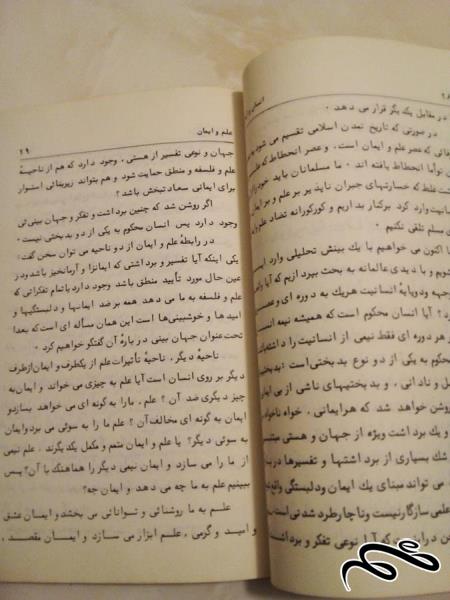 ۲۸
انسان و ا
در مقابل یک یگر قرار می دهد ۰
در صورتی که تاریخ تمدن اسلامی تقسیم می شود به
فائی که عصر علم و ایمان است، و عصر انحطاط که علم
توأما انحطاط یافته اند ۰ ما مسلمانان باید خود را از
شت غلط که خسارتهای جبران ناپذیر بر علم و بر ایما
سانیت وارد کرد برکنار بداریم و کورکورانه تضاد علم و ایما
ی مسلم تلقی نکنیم ۰
ا اکنون می خواهیم با یک بینش تحلیلی وارد این
شویم و با دیدی عالمانه به بحث بپردازیم که آیا وا
وجهه و دو پایهٔ انسانیت هریک به دوره ای و عصر
رد؟ آیا انسان محکوم است که همیشه نیمه انس
و هر دوره ای فقط نیمی از انسانیت را داشته
محکوم به یکی از دو نوع بدبختی است: بدبخ
ل و نادانی، و بدبختیهای ناشی از بی ایما
روشن خواهد شد که هر ایمانی، خواه ناخواه
و یک برداشت ویژه از جهان و هستی مبتنی
شک بسیاری از برداشتها و تفسیرها در
می تواند مبنای یک ایمان و دلبستگی واقع
علمی سازگار نیست و ناچار طرد شدنی است
که آیا نوعی تفکر و برداشت
علم و ایمان
۲۹
جهان و نوعی تفسیر از هستی، وجود دارد که هم از ناحیهٔ
علم و فلسفه و منطق حمایت شود و هم بتواند زیربنائی استوار
برای ایمانی سعادتبخش باشد؟
اگر روشن شد که چنین برداشت و تفکر و جهان بینی ئی
وجود دارد پس انسان محکوم به یکی از دو بدبختی نیست ۰
در رابطهٔ علم و ایمان از دو ناحیه می توان سخن گفت:
یکی اینکه آیا تفسیر و برداشتی که ایمانزا و آرمانخیز باشد و در
عین حال مورد تأیید منطق باشد وجود دارد یا تمام تفکراتی که
علم و فلسفه به ما می دهد همه بر ضد ایمانها و دلبستگیها و
امیدها و خوشبینی ها است این همان مسأله ای است که بعدا
تحت عنوان جهان بینی در بارهٔ آن گفتگو خواهیم کرد ۰
ناحیهٔ دیگر، ناحیهٔ تأثیرات علم از یکطرف و ایمان از طرف
دیگر بر روی انسان است آیا علم به چیزی می خواند و ایمان به
چیز دیگری ضد آن؟ علم، ما را به گونه ای می خواهد بسازد و
ایمان به گونه ای مخالف آن؟ علم ما را به سوئی می برد و ایمان
به سوئی دیگر؟ یا علم و ایمان متمم و مکمل یکدیگرند، علم نیمی
از ما را می سازد و ایمان نیمی دیگر را هماهنگ با آن؟ پس
ببینیم علم به ما چه می دهد و ایمان چه؟
علم به ما روشنائی و توانائی می بخشد و ایمان عشق
و امید و گرمی، علم ابزار می سازد و ایمان مقصد،